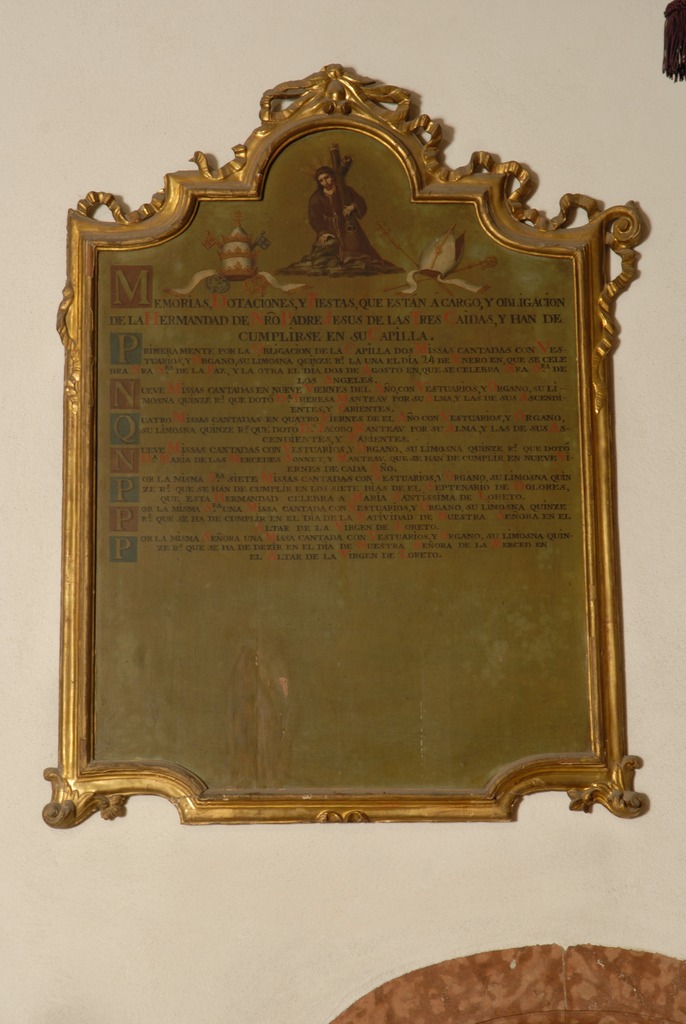 MEMORIAS, DOTACIONES, Y FIESTAS, QUE ESTAN A CARGO, Y OBLIGACION
DE LA HERMANDAD DE NRÕ PADRE JESUS DE LAS TRES CAIDAS, Y HAN DE
CUMPLIRSE EN SU CAPILLA.
PRIMERAMENTE POR LA OBLIGACION DE LA CAPILLA DOS MISSAS CANTADAS CON VES-
TUARIOS, Y ORGANO, SU LIMOSNA QUINZE Rˢ. LA UNA EL DIA 24 DE ENERO EN, QUE SE CELE
BRA NRA Sᴿᴬ DE LA PAZ, Y LA OTRA EL DIA DOS DE AGOSTO EN, QUE SE CELEBRA NRA Sᴿᴬ. DE
LOS ANGELES.
NUEVE MISSAS CANTADAS EN NUEVE VIERNES DEL AÑO, CON VESTUARIOS, Y ORGANO, SU LI-
MOSNA QUINZE Rˢ. QUE DOTÓ Dᴬ. THERESA MANTEAV POR SU ALMA, Y LAS DE SUS ASCENDI-
ENTES, Y PARIENTES.
QUATRO MISSAS CANTADAS EN QUATRO VIERNES DE EL AÑO CON VESTUARIOS, Y ORGANO,
SU LIMOSNA QUINZE Rˢ. QUE DOTÓ Dᴺ. JACOBO MANTEAV POR SU ALMA, Y LAS DE SUS AS-
CENDIENTES, Y PARIENTES.
NUEVE MISSAS CANTADAS CON VESTUARIOS, Y ORGANO, SU LIMOSNA QUINZE Rˢ. QUE DOTÓ
Dᴬ. MARIA DE LAS MERCEDES JONNET, Y MANTEAV, QUE SE HAN DE CUMPLIR EN NUEVE VI-
ERNES DE CADA AÑO.
POR LA MISMA Sᴿᴬ. SIETE MISSAS CANTADAS CON VESTUARIOS, Y ORGANO, SU LIMOSNA QUIN
ZE Rˢ. QUE SE HAN DE CUMPLIR EN LOS SIETE DIAS DE EL SEPTENARIO DE DOLORES,
QUE ESTA HERMANDAD CELEBRA A MARIA SANTISSIMA DE LORETO.
POR LA MISMA Sᴿᴬ. UNA MISSA CANTADA CON VESTUARIOS, Y ORGANO, SU LIMOSNA QUINZE
Rˢ. QUE SE HA DE CUMPLIR EN EL DIA DE LA NATIVIDAD DE NUESTRA SEÑORA EN EL
ALTAR DE LA VIRGEN DE LORETO.
POR LA MISMA SEÑORA UNA MISSA CANTADA CON VESTUARIOS, Y ORGANO, SU LIMOSNA QUIN-
ZE Rˢ. QUE SE HA DE DEZIR EN EL DIA DE NUESTRA SEÑORA DE LA MERCED EN
EL ALTAR DE LA VIRGEN DE LORETO.